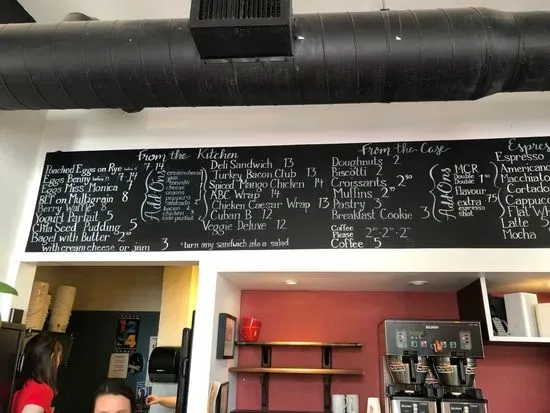 From the Kitchen
Poached Eggs on Rye
7 14
Eggs Benny
7 14
Eggs Miss Monica
BLT on Multigrain 8
Berry Waffle
Yogurt Parfait 5
Chia Seed Pudding 5
Bagel with Butter 2.50
with cream cheese or jam 3
Add Ons
creamcheese
jam
tomato
cheese
onions
peppers
avocado
bacon
chicken
side parfait
Deli Sandwich 13
Turkey Bacon Club 13
Spiced Mango Chicken 14
ABC Wrap
Chicken Caesar Wrap 13
Cuban B 12
Veggie Deluxe 12
*turn any sandwich into a salad
From the Case
Doughnuts 2
Biscotti 2
Croissants
Muffins 2.50
Pastry
Breakfast Cookie 3
Coffee
Please
Coffee 5
Add Ons
MCR
Double
Double
Flavour
extra
espresso
shot
Espres
Espresso
American
Macchiato
Cortado
Cappucc
Flat Wh
Latte 5
Mocha
BUNN